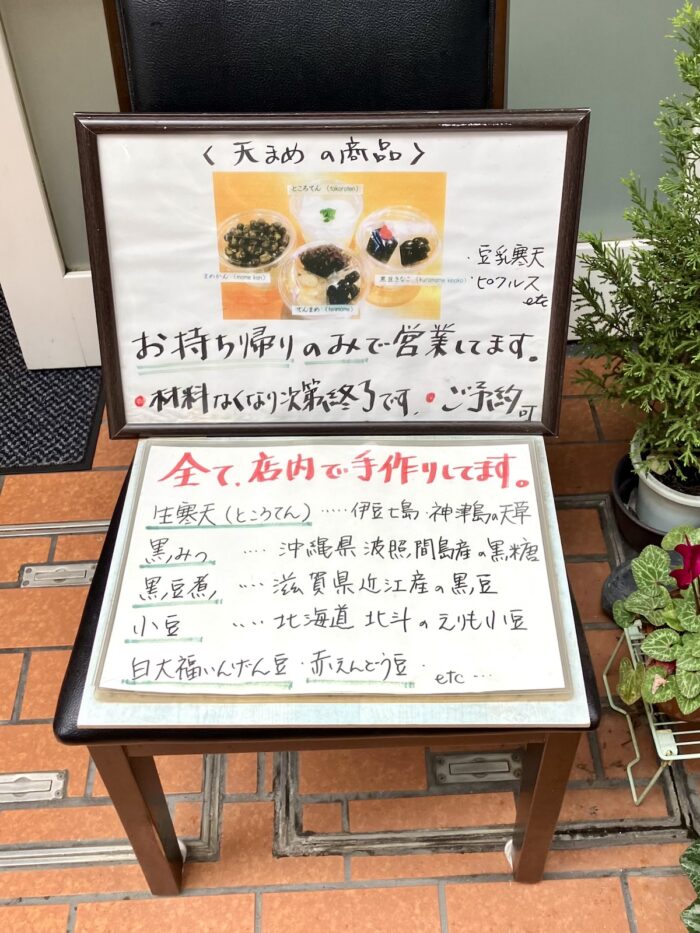 〈 天まめ の商品 〉
ところてん (tokoroten)
まめかん (mame kan)
黒豆きなこ (kuromame kinako)
てんまめ (tenmame)
・豆乳寒天
・ピフルス
etc
お持ち帰りのみで営業してます。
・材料なくなり次第終了です. ・ご予約可
全て、店内で手作りしてます。
生寒天(ところてん) ‥‥‥ 伊豆七島・神津島の天草
黒みつ ‥‥ 沖縄県 波照間島産の黒糖
黒豆煮 ‥‥ 滋賀県近江産の黒豆
小豆 ‥‥ 北海道 北斗の えりも小豆
白大福いんげん豆・赤えんどう豆・ etc …